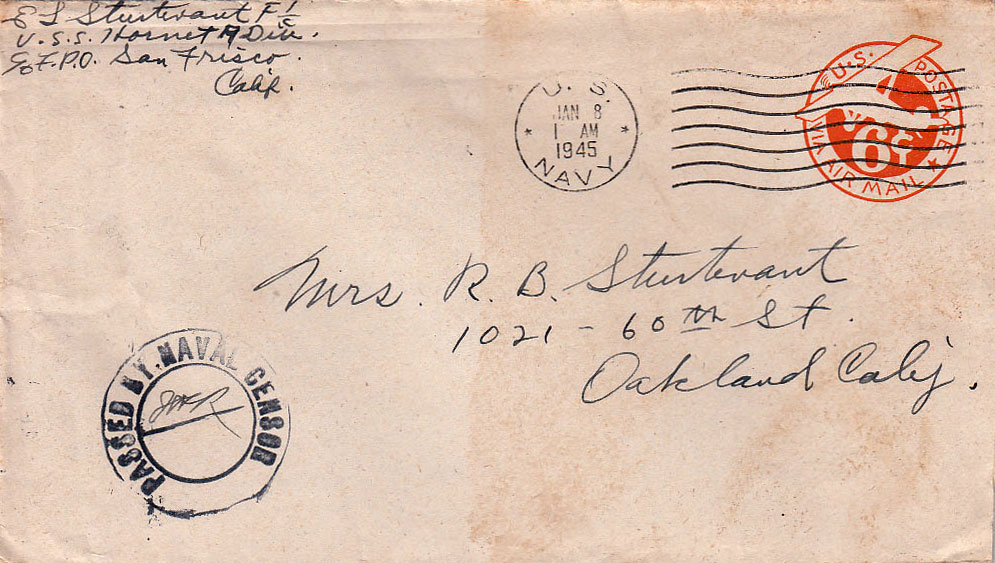 E L Sturtevant F 1/c
U.S.S. Hornet A Div.
c/o F.P.O. San Frisco.
Calif.
U. S.
JAN 8
1 AM
1945
NAVY
U.S. POSTAGE
6¢
VIA AIR MAIL
Mrs. R. B. Sturtevant
1021 - 60th St.
Oakland Calif.
PASSED BY NAVAL CENSOR